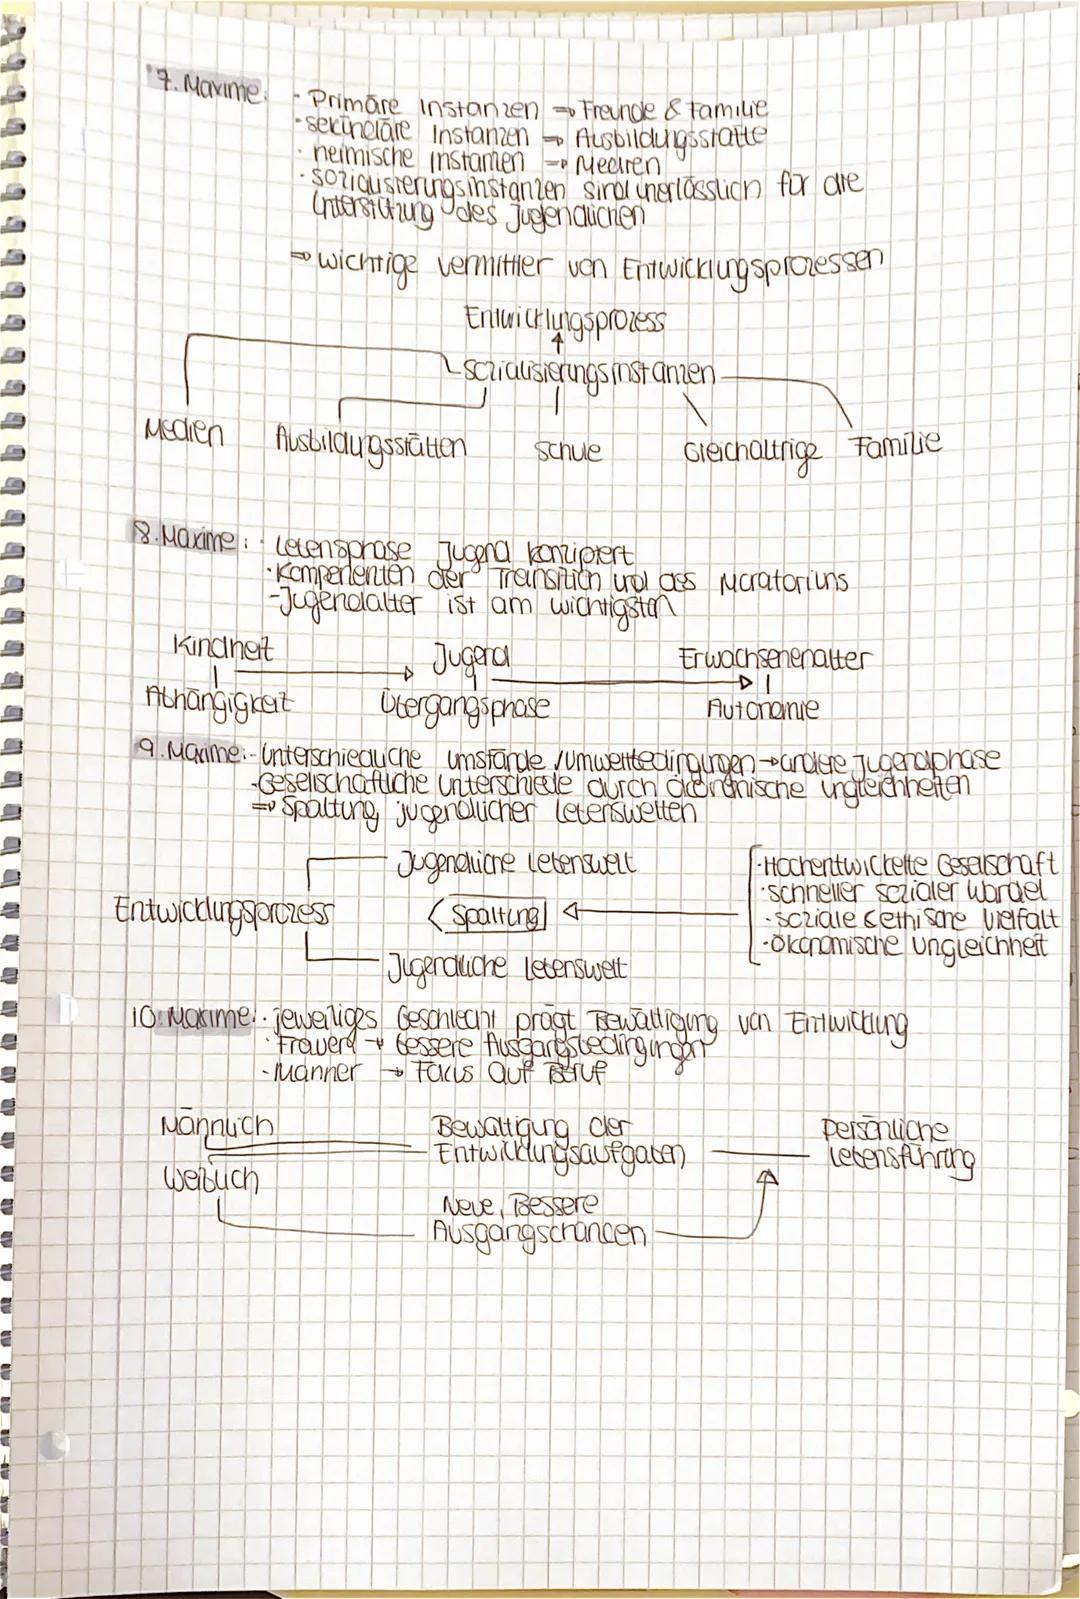 7. Maxime:
· Primäre Instanzen ⇒ Freunde & Familie
· sekundäre Instanzen ⇒ Ausbildungsstätte
· heimische Instanzen ⇒ Medien
· sozialisierungsinstanzen sind unerlässlich für die
Unterstützung des Jugendlichen
⇒ wichtige vermittler von Entwicklungsprozessen
Entwicklungsprozess
sozialisierungsinstanzen
Medien Ausbildungsstätten Schule Gleichaltrige Familie
8. Maxime: · Lebensphase Jugend konzipiert
· Komponenten der Transition und des Moratoriums
- Jugendalter ist am wichtigsten
Kindheit → Jugend → Erwachsenenalter
Abhängigkeit Übergangsphase Autonomie
9. Maxime: - Unterschiedliche umstände / umweltbedingungen → andere Jugendphase
- Gesellschaftliche Unterschiede durch ökonomische ungleichheiten
⇒ Spaltung jugendlicher Lebenswelten
Jugendliche Lebenswelt
Entwicklungsprozess
Spaltung
Jugendliche Lebenswelt
· Hochentwickelte Gesellschaft
· schneller sozialer Wandel
· soziale & ethische Vielfalt
· Ökonomische Ungleichheit
10. Maxime: · jeweiliges Geschlecht prägt Bewältigung von Entwicklung
· Frauen → bessere Ausgangsbedingungen
- Männer → Fokus auf Beruf
Männlich
Weiblich
Bewältigung der
Entwicklungsaufgaben
persönliche
Lebensführung
Neue, Bessere
Ausgangschancen